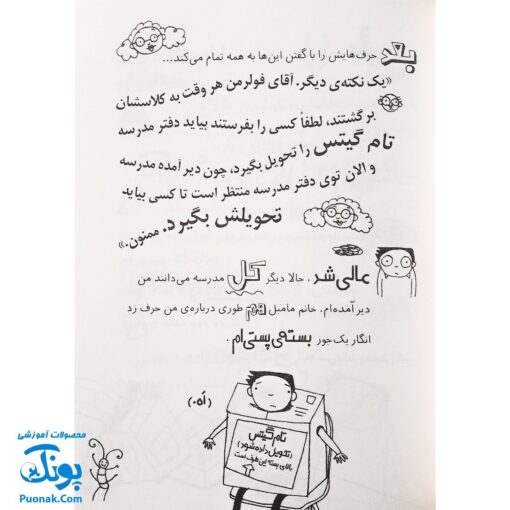 بعد حرف‌هایش را با گفتن این‌ها به همه تمام می‌کند...
«یک نکته‌ی دیگر. آقای فولرمن هر وقت به کلاسشان
برگشتند، لطفاً کسی را بفرستند بیاید دفتر مدرسه
تام گیتس را تحویل بگیرد، چون دیر آمده مدرسه
و الان توی دفتر مدرسه منتظر است تا کسی بیاید
تحویلش بگیرد. ممنون.»
عالی شد، حالا دیگر کل مدرسه می‌دانند من
دیر آمده‌ام. خانم مامبل هم طوری درباره‌ی من حرف زد
انگار یک‌جور بسته‌ی پستی‌ام.
(آه!)
تام گیتس
(تحویل داده شود)
بالای بسته این طرف است
محصولات آموزشی
پونک
Puonak.Com